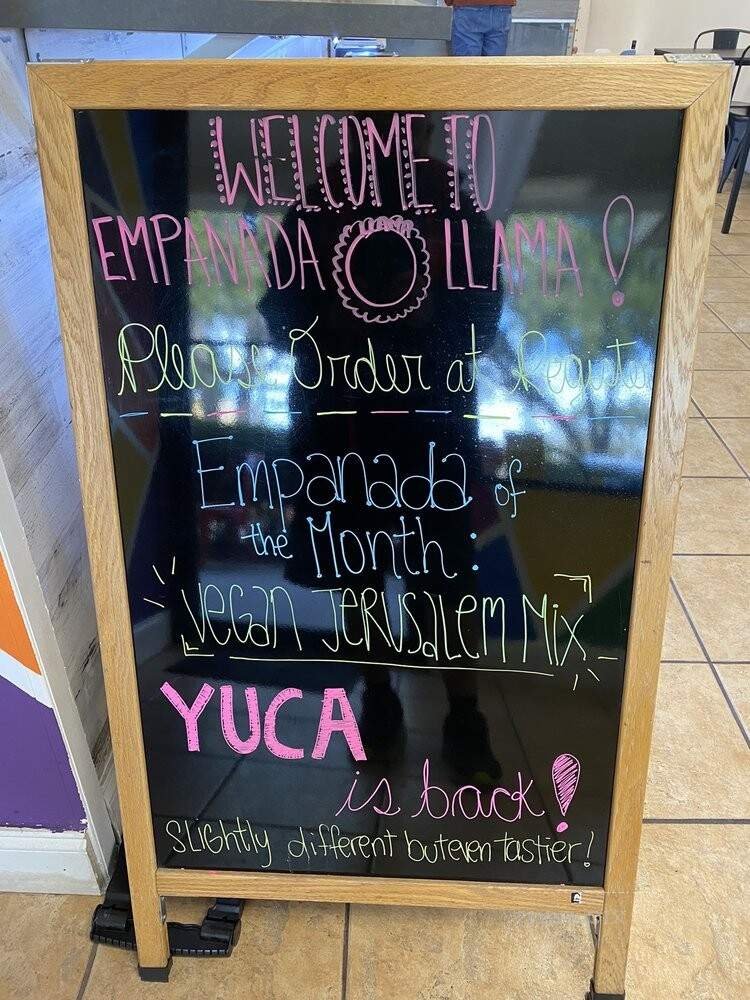 WELCOME TO
EMPANADA LLAMA!
Please Order at Register
Empanada of
the Month:
Vegan Jerusalem Mix
YUCA
is back!
Slightly different but even tastier!